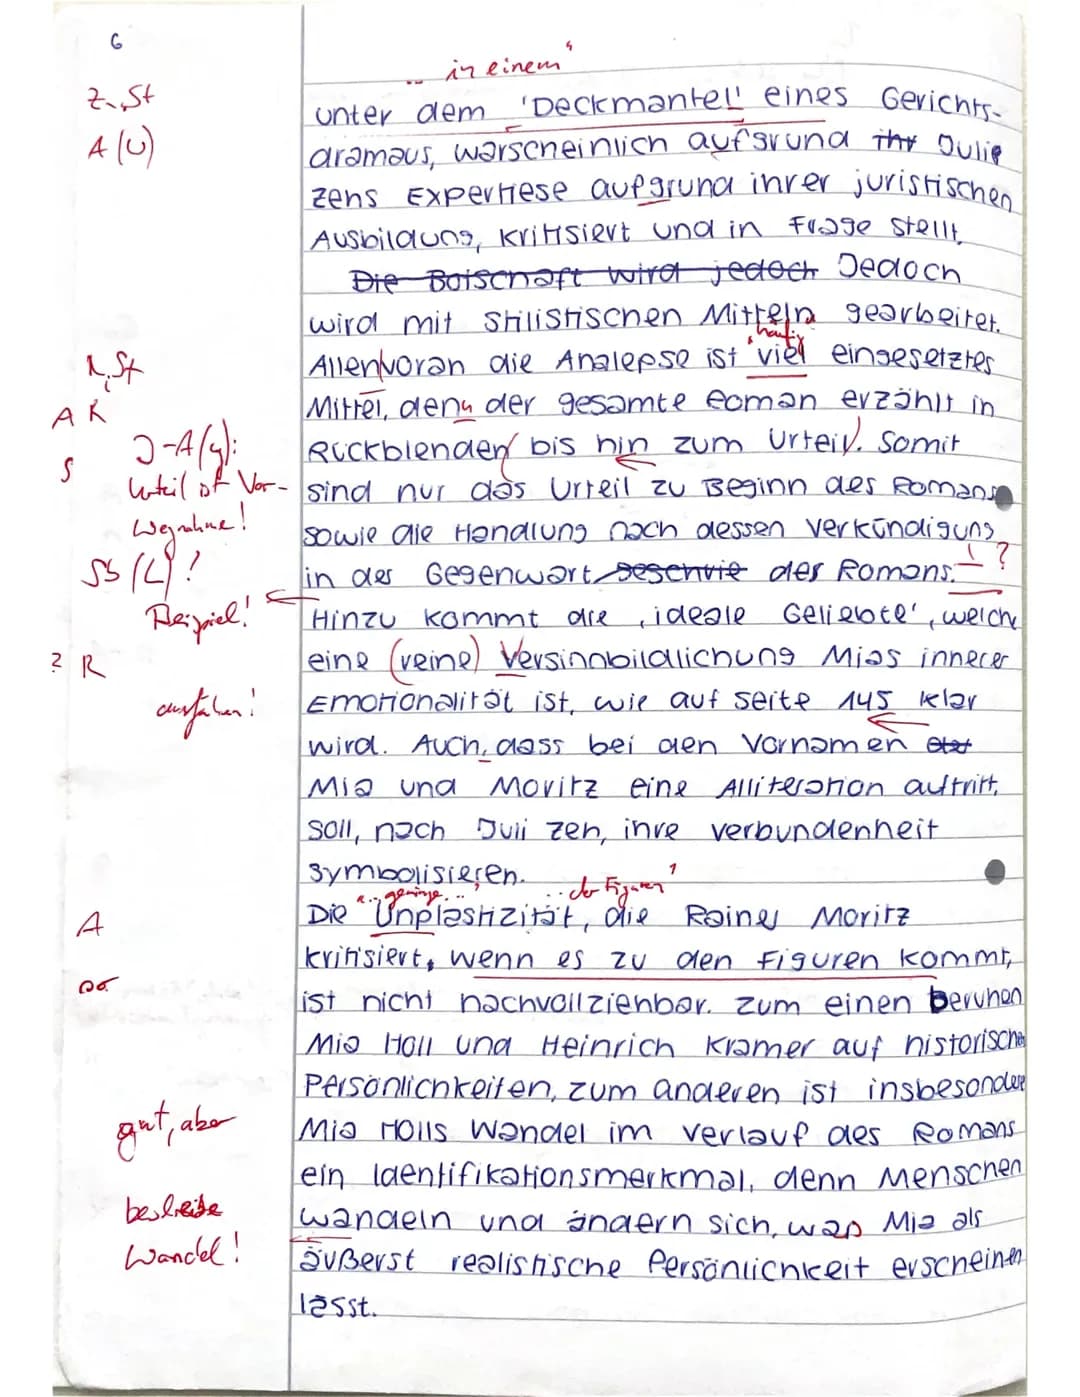 6
„ .. in einem"
Z, St
unter dem 'Deckmantel' eines Gerichts-
A (U)
dramaus, warscheinlich aufgrund ihr Julie
Zens Expertiese aufgrund ihrer juristischen
Ausbildung, kritisiert und in Frage stellt.
Die Botschaft wird jedoch Jedoch
wird mit stilistischen Mitteln gearbeitet.
häufig
R, St
Allenvoran die Analepse ist viel eingesetztes
A R
Mittel, denn der gesamte Roman erzählt in
J-A(g):
Rückblenden bis hin zum Urteil. Somit
S
Urteil ist Vor-
sind nur das Urteil zu Beginn des Romans
wegnahme!
sowie die Handlung nach dessen Verkündigung
SS (L)?
in der Gegenwart des Romans. ?
Beispiel!
Hinzu kommt die ‚ideale Geliebte', welche
? R
eine (reine) Versinnbildlichung Mias innerer
ausführen!
Emotionalität ist, wie auf Seite 145 klar
wird. Auch, dass bei den Vornamen
Mia und Moritz eine Alliteration auftritt,
soll, nach Juli Zeh, ihre verbundenheit
symbolisieren.
"..geringe.. ..der Figuren"
A
Die Unplastizität, die Rainer Moritz
kritisiert, wenn es zu den Figuren kommt,
ist nicht nachvollziehbar. Zum einen beruhen
Mia Holl und Heinrich Kramer auf historische
Persönlichkeiten, zum anderen ist insbesondere
gut, aber
Mia Holls Wandel im verlauf des Romans
ein Identifikationsmerkmal, denn Menschen
beschreibe
wandeln und ändern sich, was Mia als
Wandel!
äußerst realistische Persönlichkeit erscheinen
lässt.